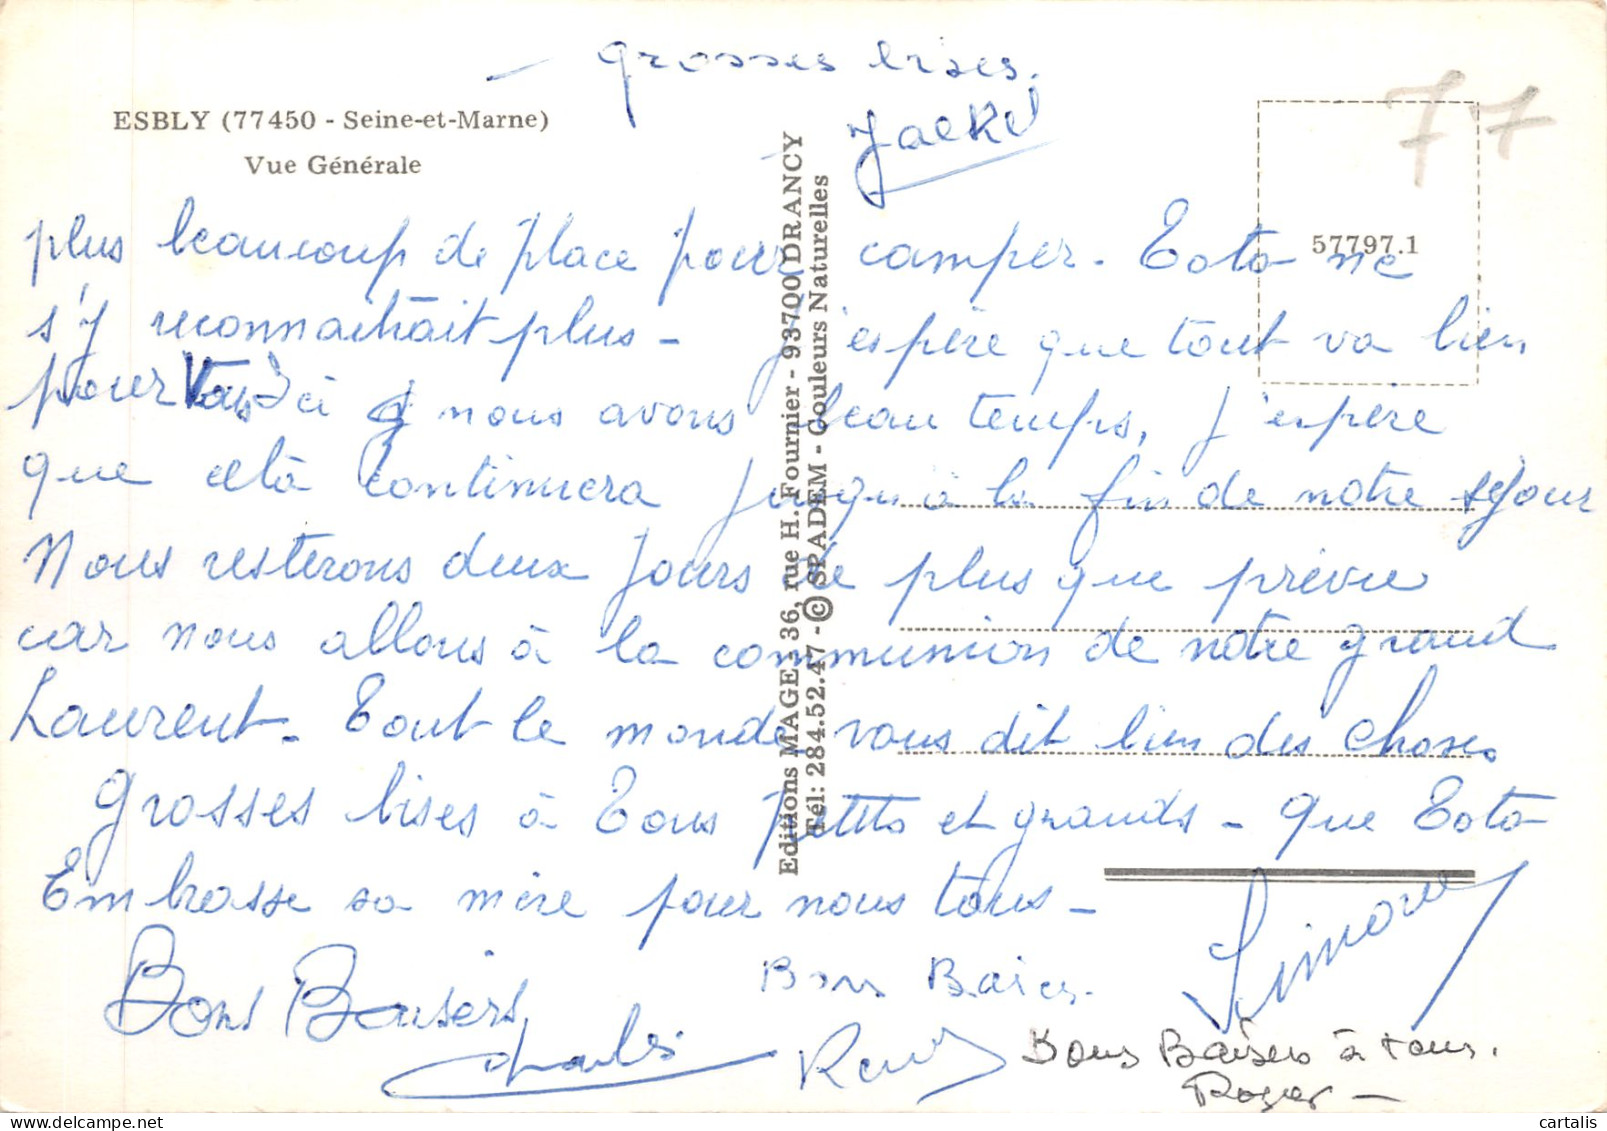 — Grosses bises.
Jackie
ESBLY (77450 - Seine-et-Marne)
Vue Générale
77
57797.1
plus beaucoup de place pour camper. Toto ne
s'y reconnaitrait plus - J'espère que tout va bien
pour Vous Ici nous avons beau temps, J'espère
que celà continuera jusqu'à la fin de notre séjour
Nous resterons deux Jours de plus que prévue
car nous allons à la communion de notre grand
Laurent. Tout le monde vous dit bien des choses
Grosses bises à Tous petits et grands - que Toto
Embrasse sa mère pour nous tous -
Simone
Bons Baisers
Charles
Bons Baises.
René
Bons Baisers à tous.
Roger -
Editions MAGE - 36, rue H. Fournier - 93700 DRANCY
Tél: 284.52.47 - © SPADEM - Couleurs Naturelles
cartalis
delcampe.net